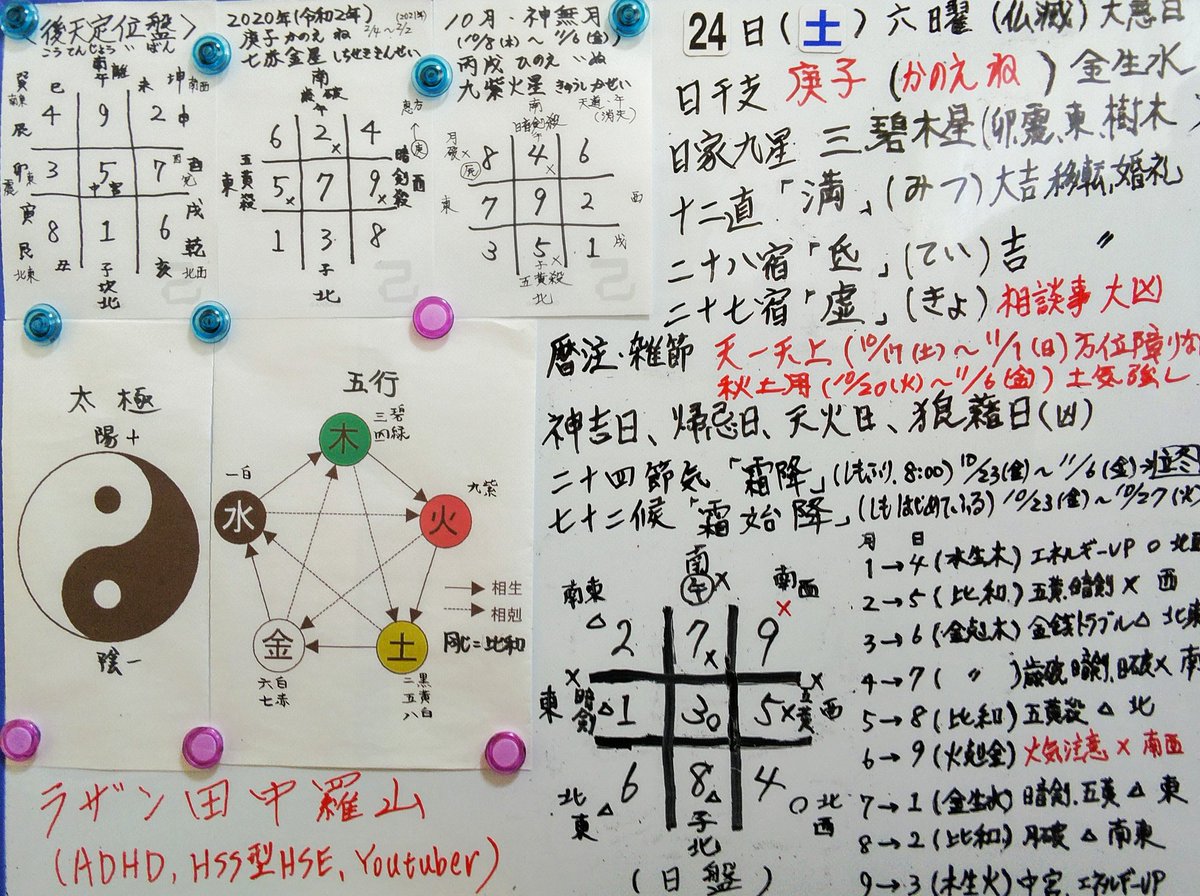 〈後天定位盤〉
こうてんじょういばん
南
午
離
巽
南東
巳
未
坤
南西
辰
4 9 2
申
卯
東
震
3 5 7
中宮
酉
兌
寅
8 1 6
戌
艮
北東
丑
子
坎
北
亥
乾
北西
2020年(令和2年)
(2021年)
庚子 かのえ ね 2/4〜2/2
七赤金星 しちせききんせい
南
歳破
午
6 2× 4
五黄殺
東
5× 7 9×
暗剣殺
西
1 3 8
子
北
10月・神無月
(10/8(木)〜11/6(金))
丙戌 ひのえ いぬ
九紫火星 きゅうしかせい
恵方
南
暗剣殺
天道・午
(消失)
月破×
辰
8 4× 6
東
7 9 2
西
3 5× 1
戌
子
五黄殺
北
太極
陽+
陰−
五行
木
三碧
四緑
一白
水
九紫
火
→相生
→相剋
同じ=比和
金
六白
七赤
土
二黒
五黄
八白
ラザン田中羅山
(ADHD, HSS型HSE, Youtuber)
24日(土)六曜(仏滅)大悪日
日干支 庚子(かのえ ね)金生水
日家九星 三碧木星(卯,震,東,樹木
十二直「満」(みつ)大吉 移転,婚礼
二十八宿「氐」(てい)吉 〃
二十七宿「虚」(きょ)相談事大凶
暦注・雑節 天一天上(10/17(土)〜11/1(日)万位障りな
秋土用(10/20(火)〜11/6(金))土気強し
神吉日、帰忌日、天火日、狼藉日(凶)
二十四節気「霜降」(しもふり,8:00)10/23(金)〜11/6(金)
七十二候「霜始降」(しもはじめているる)10/23(金)〜10/27(火)
南東
南
午×
南西
×
△2 7× 9
×
東
暗剣
△1 3○ 5×
×
五黄
西
6 8△ 4
北東△
子
北
○北西
(日盤)
月 日
1→4(水生木)エネルギーUP ○ 北西
2→5(比和)五黄,暗剣 × 西
3→6(金剋木)金銭トラブル△ 北東
4→7( 〃 )歳破,暗剣,日破× 南
5→8(比和)五黄殺 △ 北
6→9(火剋金)火気注意 × 南西
7→1(金生水)暗剣,五黄 △ 東
8→2(比和)月破 △ 南東
9→3(木生火)中宮,エネルギーUP